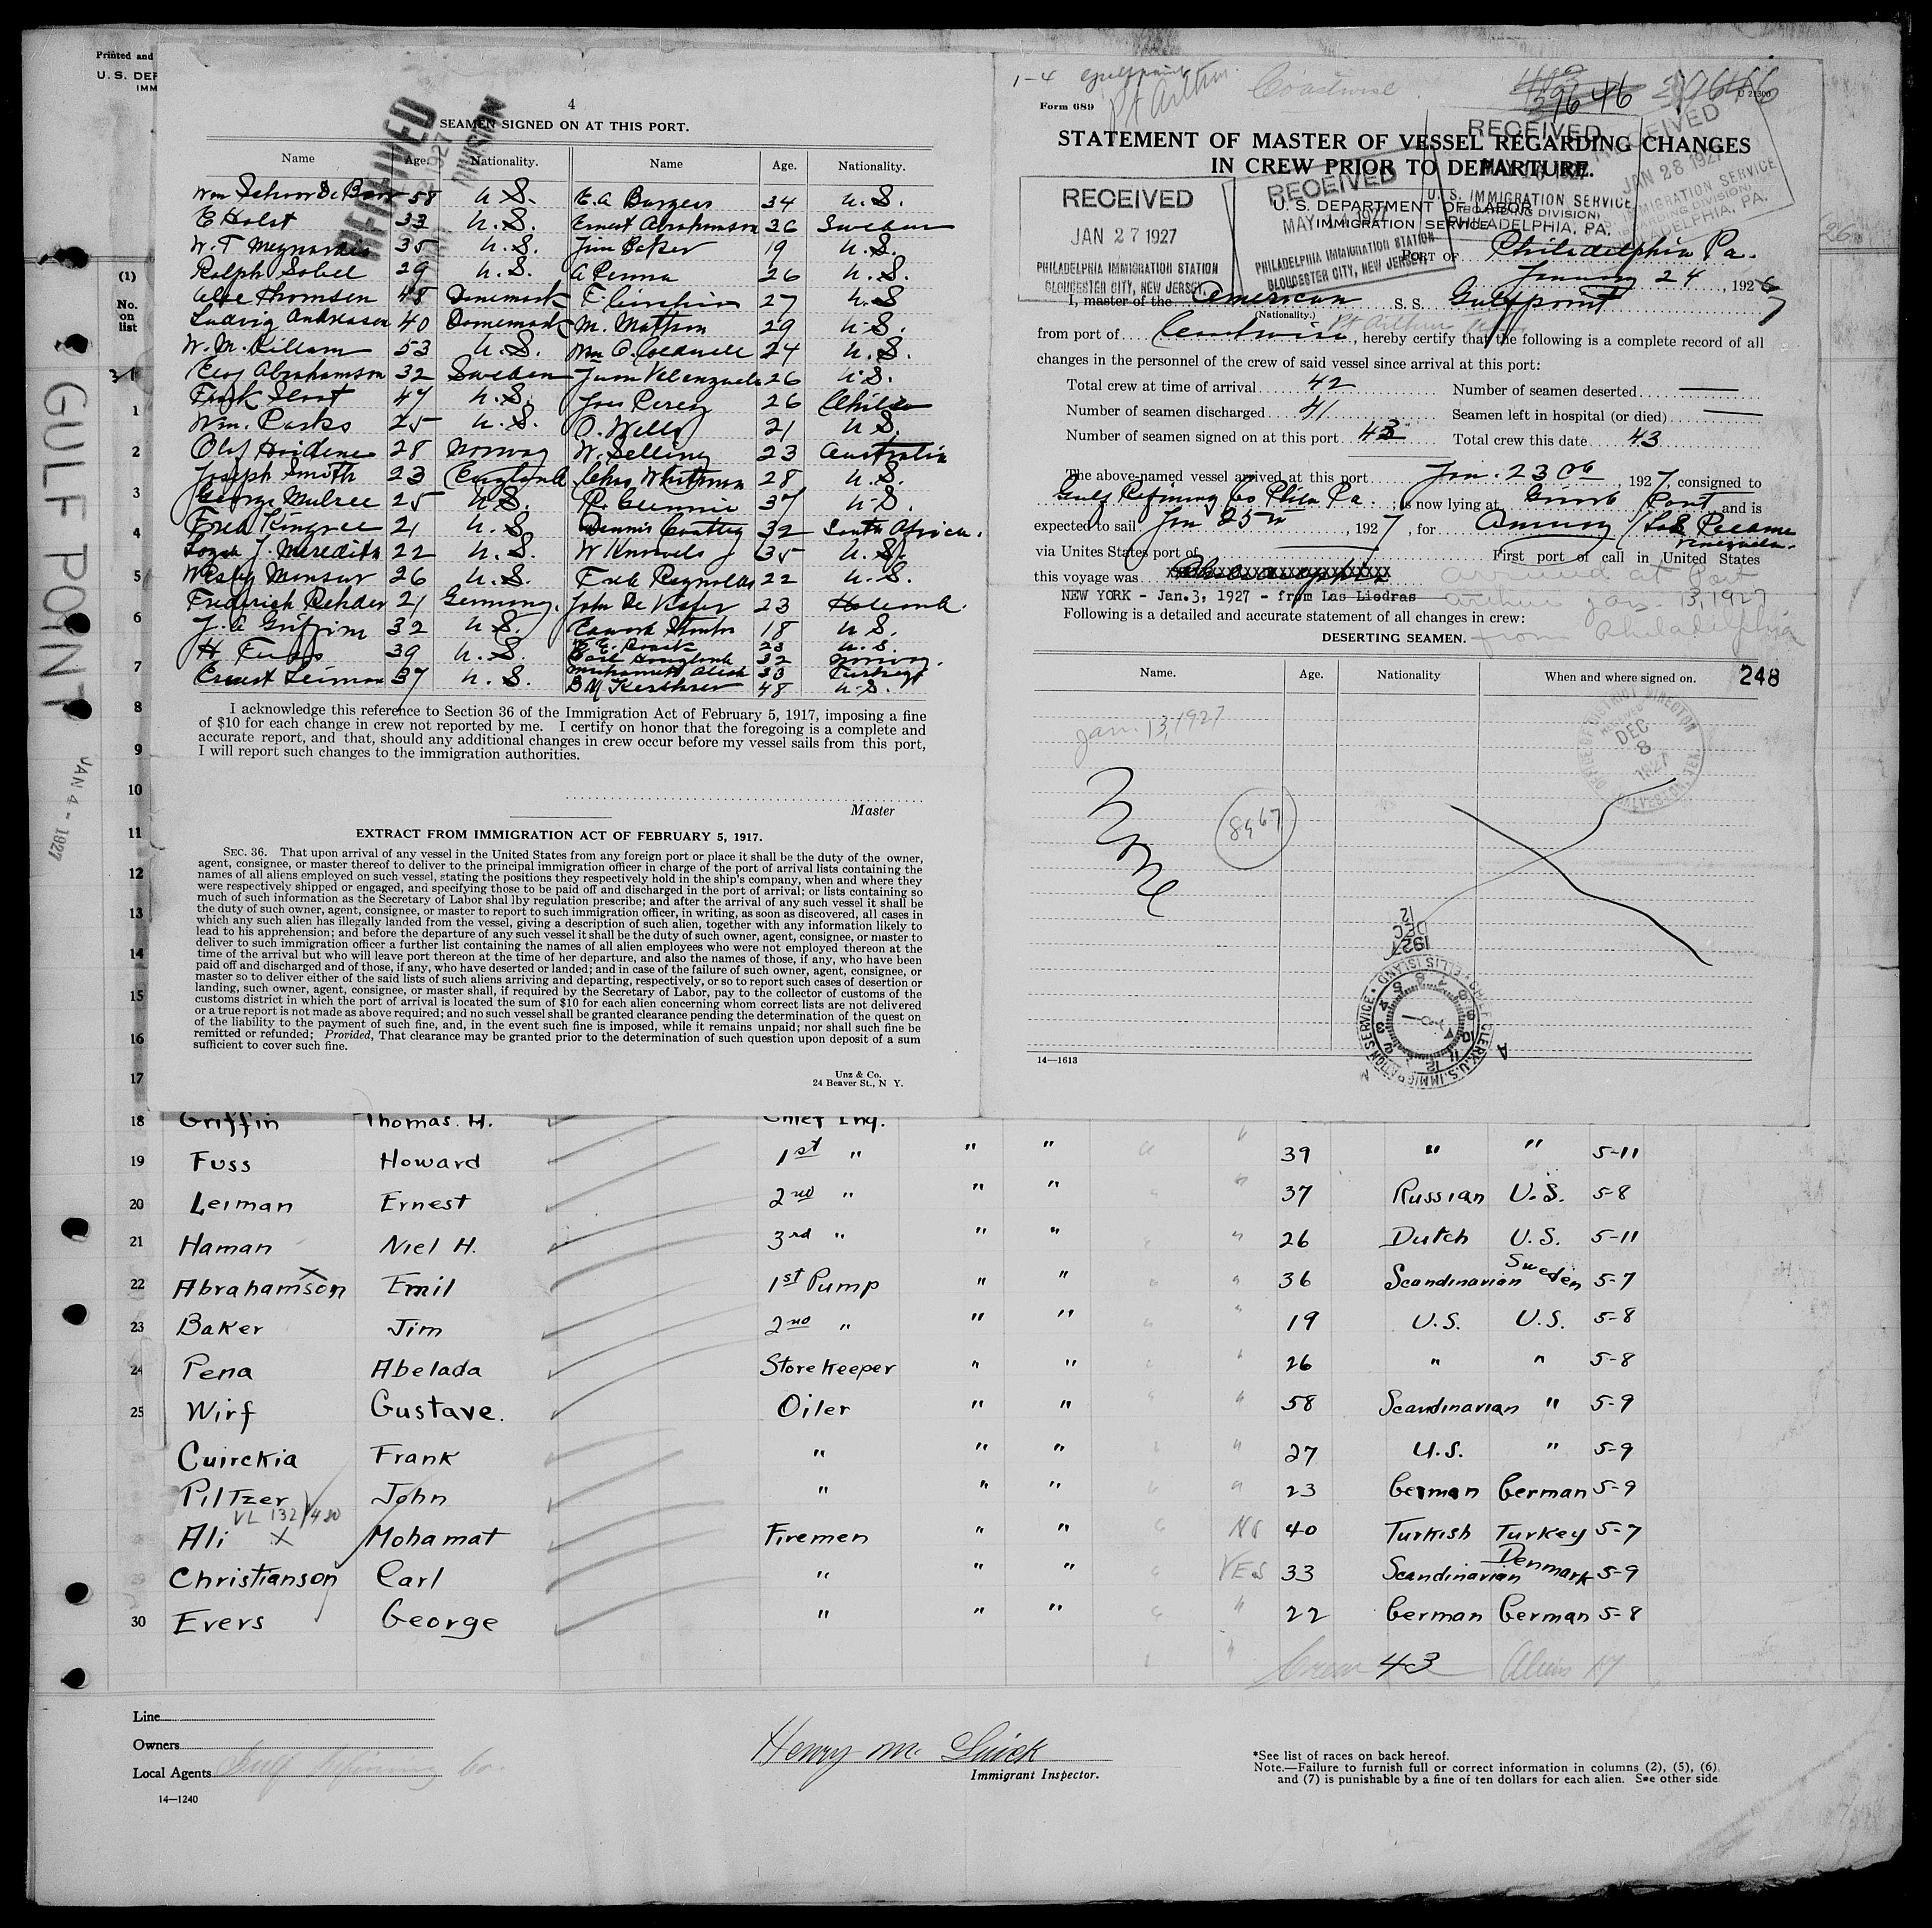 Printed and
U. S. DEP
IMM
(1)
No.
on
list
GULFPOINT
JAN 4 - 1927
4
SEAMEN SIGNED ON AT THIS PORT.
RECEIVED
DIVISION
Name Age. Nationality. Name Age. Nationality.
58 U.S. E.A. Burgess 34 U.S.
E Holst 33 U.S. Ernest Abrahamson 36 Sweden
W. T. 35 U.S. Jim Baker 19 U.S.
Ralph Sobel 29 U.S. A Penna 26 U.S.
Thomsen 48 Denemark F. 27 U.S
Ludvig Andreasen 40 Denemark M. Mattson 29 U.S.
W. M. Killam 53 U.S. Wm C. Coldwell 24 U.S.
Abrahamson 32 Sweden Juan Velenzuela 26 U.S.
Frank 47 U.S. Jose Perez 26 Chile
Wm. Parks 25 U.S. O. Wells 21 U.S.
Olaf 28 Norway W. Selling 23 Australia
Joseph Smith 23 England Chas Whitman 28 U.S.
George 25 U.S. R. 37 U.S.
Fred 21 U.S. Dennis 32 South Africa.
J. Meredith 22 U.S. W 35 U.S.
Wesley 26 U.S. Fred Reynolds 22 U.S.
Frederich Rehder 21 Germany. John De 23
J. A Griffin 32 U.S. 18 U.S.
H. Fuss 39 U.S. 23 U.S.
32 Norway.
Ernest Leiman 37 U.S. 33
B M 48 U.S.
I acknowledge this reference to Section 36 of the Immigration Act of February 5, 1917, imposing a fine
of $10 for each change in crew not reported by me. I certify on honor that the foregoing is a complete and
accurate report, and that, should any additional changes in crew occur before my vessel sails from this port,
I will report such changes to the immigration authorities.
Master
EXTRACT FROM IMMIGRATION ACT OF FEBRUARY 5, 1917.
SEC. 36. That upon arrival of any vessel in the United States from any foreign port or place it shall be the duty of the owner,
agent, consignee, or master thereof to deliver to the principal immigration officer in charge of the port of arrival lists containing the
names of all aliens employed on such vessel, stating the positions they respectively hold in the ship's company, when and where they
were respectively shipped or engaged, and specifying those to be paid off and discharged in the port of arrival; or lists containing so
much of such information as the Secretary of Labor shal lby regulation prescribe; and after the arrival of any such vessel it shall be
the duty of such owner, agent, consignee, or master to report to such immigration officer, in writing, as soon as discovered, all cases in
which any such alien has illegally landed from the vessel, giving a description of such alien, together with any information likely to
lead to his apprehension; and before the departure of any such vessel it shall be the duty of such owner, agent, consignee, or master to
deliver to such immigration officer a further list containing the names of all alien employees who were not employed thereon at the
time of the arrival but who will leave port thereon at the time of her departure, and also the names of those, if any, who have been
paid off and discharged and of those, if any, who have deserted or landed; and in case of the failure of such owner, agent, consignee, or
master so to deliver either of the said lists of such aliens arriving and departing, respectively, or so to report such cases of desertion or
landing, such owner, agent, consignee, or master shall, if required by the Secretary of Labor, pay to the collector of customs of the
customs district in which the port of arrival is located the sum of $10 for each alien concerning whom correct lists are not delivered
or a true report is not made as above required; and no such vessel shall be granted clearance pending the determination of the quest on
of the liability to the payment of such fine, and, in the event such fine is imposed, while it remains unpaid; nor shall such fine be
remitted or refunded; Provided, That clearance may be granted prior to the determination of such question upon deposit of a sum
sufficient to cover such fine.
Unz & Co.
24 Beaver St., N Y.
1-4 Gulfpoint Pt Arthur. Coastwise
Form 689
STATEMENT OF MASTER OF VESSEL REGARDING CHANGES
IN CREW PRIOR TO DEPARTURE.
RECEIVED
JAN 27 1927
PHILADELPHIA IMMIGRATION STATION
GLOUCESTER CITY, NEW JERSEY
RECEIVED
MAY 14 1927
PHILADELPHIA IMMIGRATION STATION
GLOUCESTER CITY, NEW JERSEY
RECEIVED
U.S. IMMIGRATION SERVICE
(BOARDING DIVISION)
PHILADELPHIA, PA.
RECEIVED
JAN 28 1927
IMMIGRATION SERVICE
(BOARDING DIVISION)
PHILADELPHIA, PA.
U.S. DEPARTMENT OF LABOR
IMMIGRATION SERVICE
PORT OF Philadelphia Pa.
January 24, 1927
I, master of the American S. S. Gulfpoint
(Nationality.)
from port of Coastwise Pt Arthur, hereby certify that the following is a complete record of all
changes in the personnel of the crew of said vessel since arrival at this port:
Total crew at time of arrival 42 Number of seamen deserted
Number of seamen discharged 41 Seamen left in hospital (or died)
Number of seamen signed on at this port 42 Total crew this date 43
The above-named vessel arrived at this port Jan. 23, 1927, consigned to
Gulf Refining Co Phila Pa.; is now lying at Girard Point, and is
expected to sail Jan 25th, 1927, for
Venezuela.
via Unites States port of First port of call in United States
this voyage was XXXXXXXXXXXXXXXXXX arrived at Port
NEW YORK - Jan.3, 1927 - from Las Piedras Arthur Jan. 13, 1927
Following is a detailed and accurate statement of all changes in crew:
from Philadelphia
DESERTING SEAMEN.
Name. Age. Nationality When and where signed on.
248
Jan. 13, 1927
None
8967
OFFICE OF DISTRICT DIRECTOR
RECEIVED
DEC 8 1927
GALVESTON, TEX.
DEC 12 1927
CHIEF CLERK, U.S. IMMIGRATION SERVICE · ELLIS ISLAND
14—1613
1
2
3
4
5
6
7
8
9
10
11
12
13
14
15
16
17
18 Griffin Thomas. H. Chief Eng.
19 Fuss Howard 1st " " " 39 " " 5-11
20 Leiman Ernest 2nd " " " " 37 Russian U.S. 5-8
21 Haman Niel H. 3rd " " " " 26 Dutch U.S. 5-11
22 Abrahamson X Emil 1st Pump " " " 36 Scandinavian Sweden 5-7
23 Baker Jim 2nd " " " " 19 U.S. U.S. 5-8
24 Pena Abelada Storekeeper " " " 26 " " 5-8
25 Wirf Gustave. Oiler " " " 58 Scandinavian " 5-9
Cuirckia Frank " " " " 27 U.S. " 5-9
Piltzer John " " " " 23 German German 5-9
VL 132/480
Ali X Mohamat Firemen " " No 40 Turkish Turkey 5-7
29 Christianson Carl " " " YES 33 Scandinavian Denmark 5-9
30 Evers George " " " " 22 German German 5-8
Crew 43 Aliens 17
Line
Owners
Local Agents Gulf Refining Co.
14—1240
Henry M.
Immigrant Inspector.
*See list of races on back hereof.
Note.—Failure to furnish full or correct information in columns (2), (5), (6)
and (7) is punishable by a fine of ten dollars for each alien. See other side